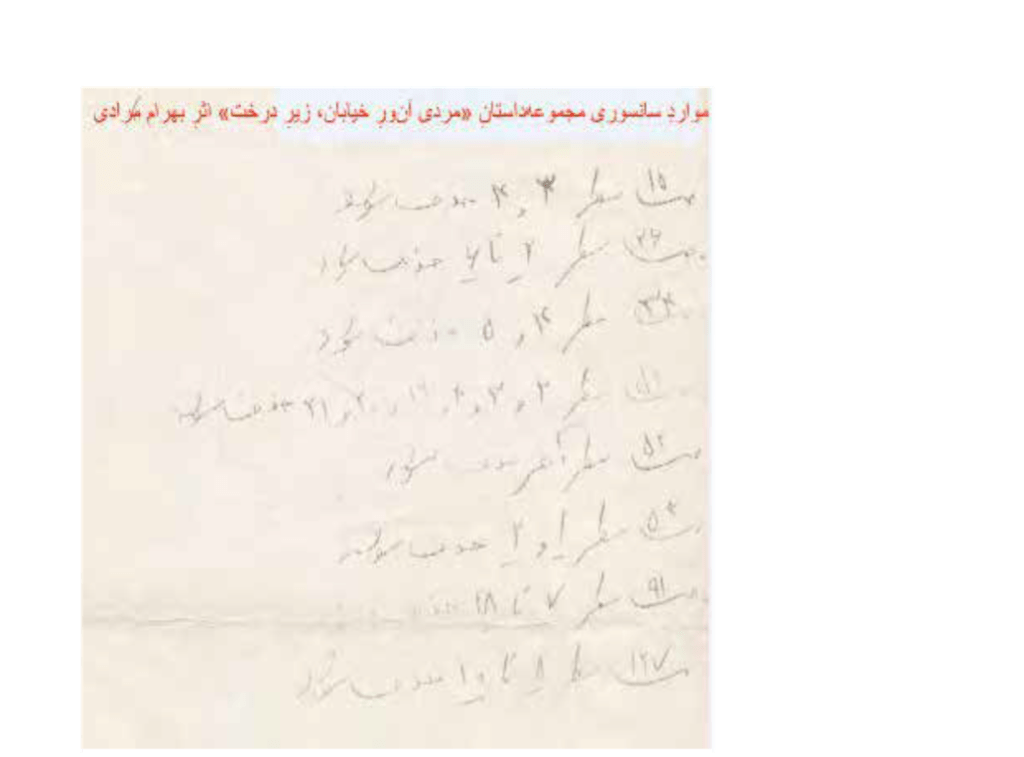 مواردِ سانسوری مجموعه‌داستانِ «مردی آن‌ورِ خیابان، زیرِ درخت» اثرِ بهرام مرادی
ص ۱۵ سطر ۳ و ۴ حذف شود
ص ۲۶ سطر ۲ تا ۶ حذف شود
ص ۳۴ سطر ۴ و ۵ حذف شود
ص ۵۱ سطر ۲ و ۳ و ۴ و ۱۹ و ۲۰ و ۲۱ حذف شود
ص ۵۲ سطر آخر حذف شود
سطر ۱ و ۲ حذف شود
ص ۹۱ سطر ۷ تا ۱۸
ص ۱۲۷ سطر ۸ تا ۱۰ حذف شود